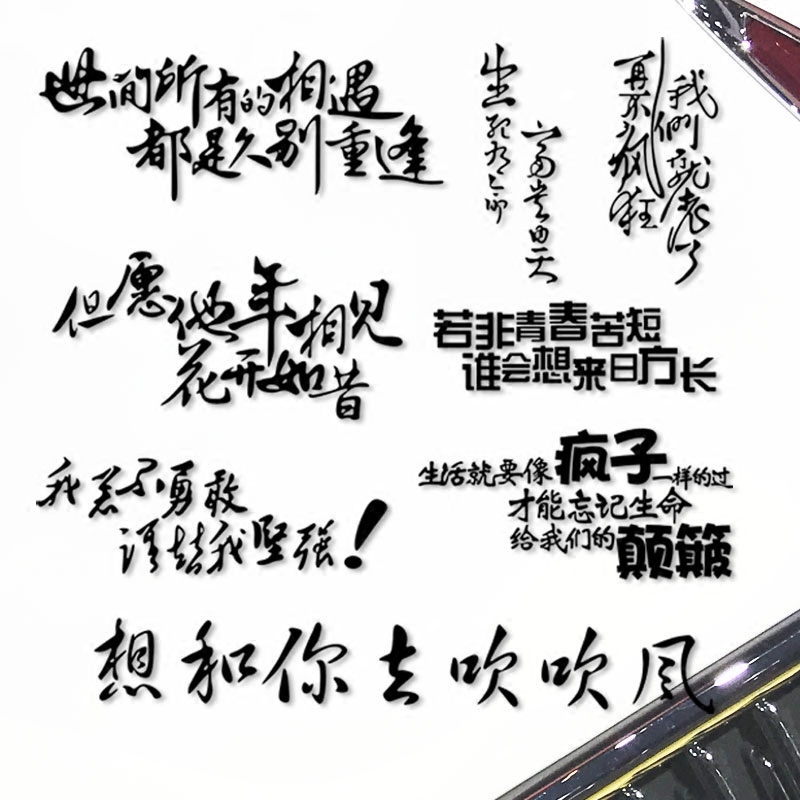 世间所有的相遇
都是久别重逢
生死有命
富贵由天
再不疯狂
我们就老了
但愿他年相见
花开如昔
若非青春苦短
谁会想来日方长
我若不勇敢
谁替我坚强！
生活就要像疯子一样的过
才能忘记生命
给我们的颠簸
想和你去吹吹风